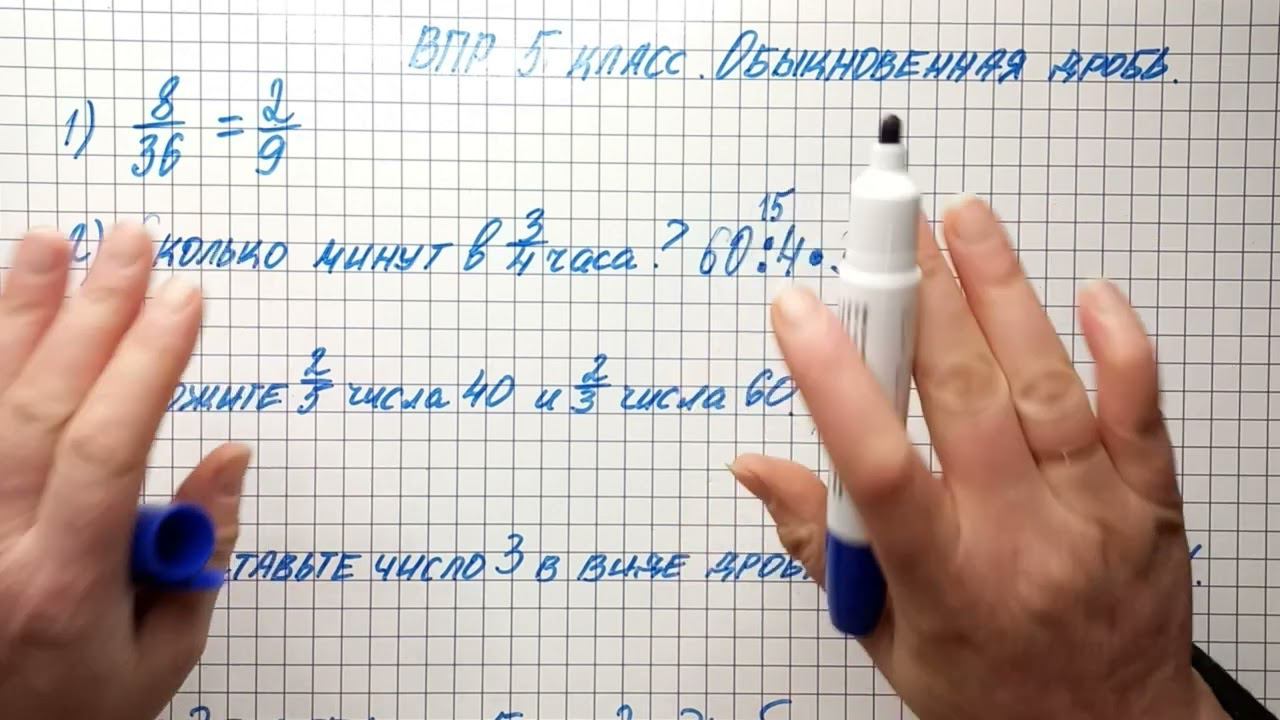 ВПР 5 класс. Обыкновенная дробь.
1) 8/36 = 2/9
2) Сколько минут в 3/4 часа? 60:4•
15
ожите 2/5 числа 40 и 2/3 числа 60.
тавьте число 3 в виде дроб